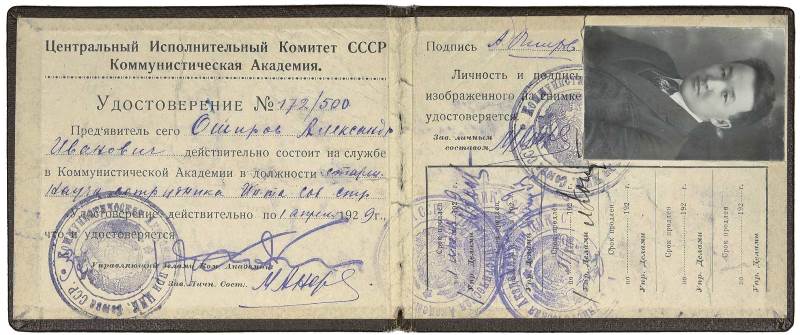 Центральный Исполнительный Комитет СССР
Коммунистическая Академия.
Удостоверение № 172/500
Предъявитель сего Оширов Александр
Иванович действительно состоит на службе
в Коммунистической Академии в должности старш.
научн. сотрудника Ин-та Сов. стр.
Удостоверение действительно по 1 апреля 1929 г.
что и удостоверяется
Управляющий Делами Ком. Академии
Зав. Личн. Сост.
Подпись А Оширов
Личность и подпись
изображенного на снимке
удостоверяется
Зав. личным
составом
Срок продлен
по 192 г.
Упр. Делами
Срок продлен
по 192 г.
Упр. Делами
Срок продлен
по 192 г.
Упр. Делами
Срок продлен
по 192 г.
Упр. Делами
Срок продлен
по 192 г.
Упр. Делами